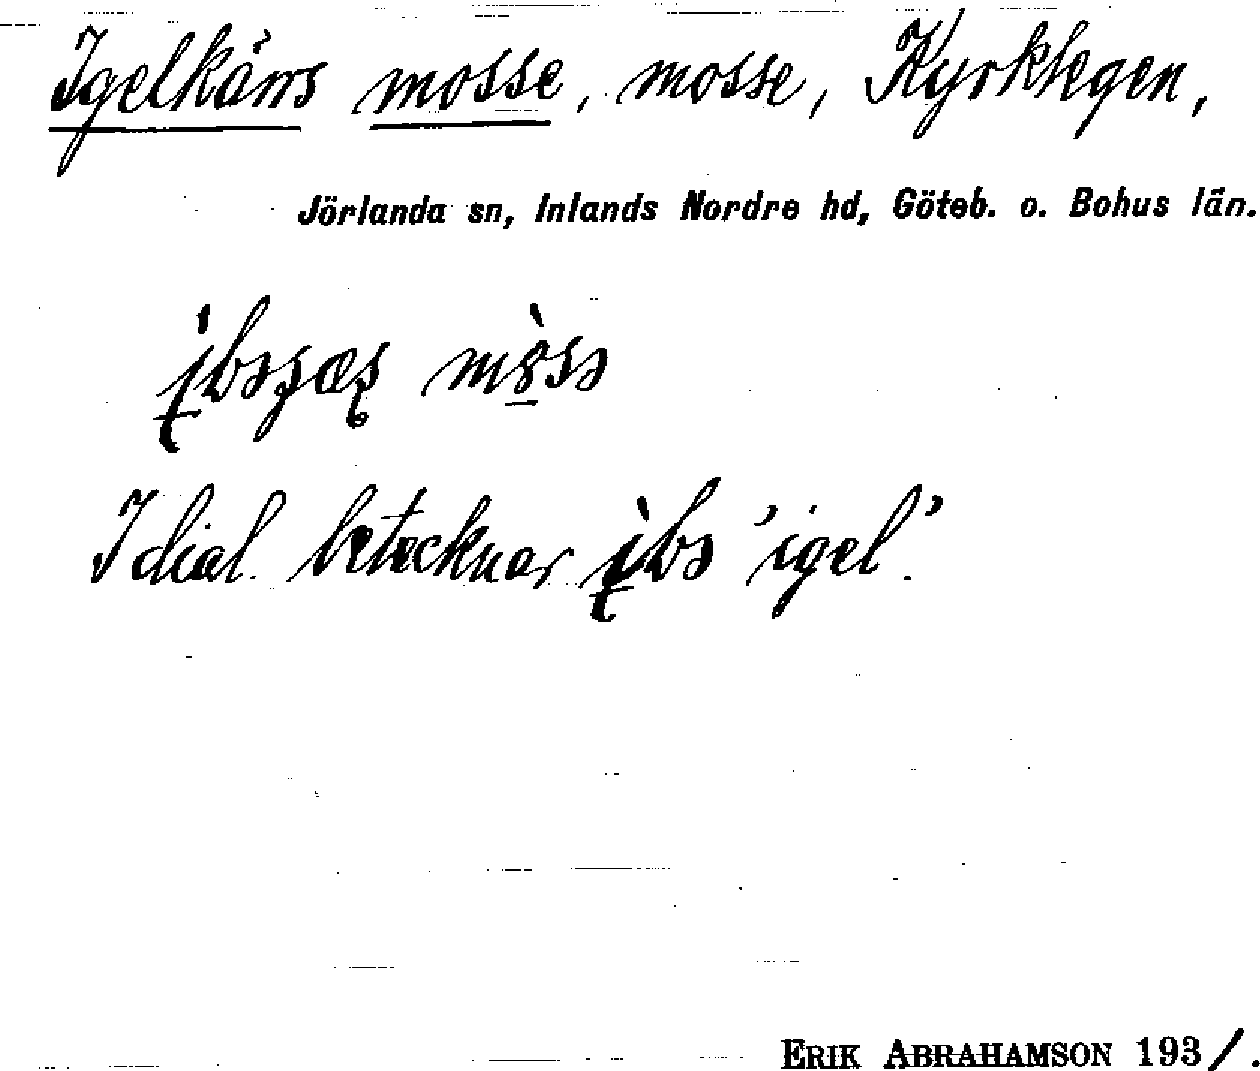 Igelkärrs mosse, mosse, Kyrkhegen,
Jörlanda sn, Inlands Nordre hd, Göteb. o. Bohus län.
I dial. betecknar 'igel'.
ERIK ABRAHAMSON 193/.